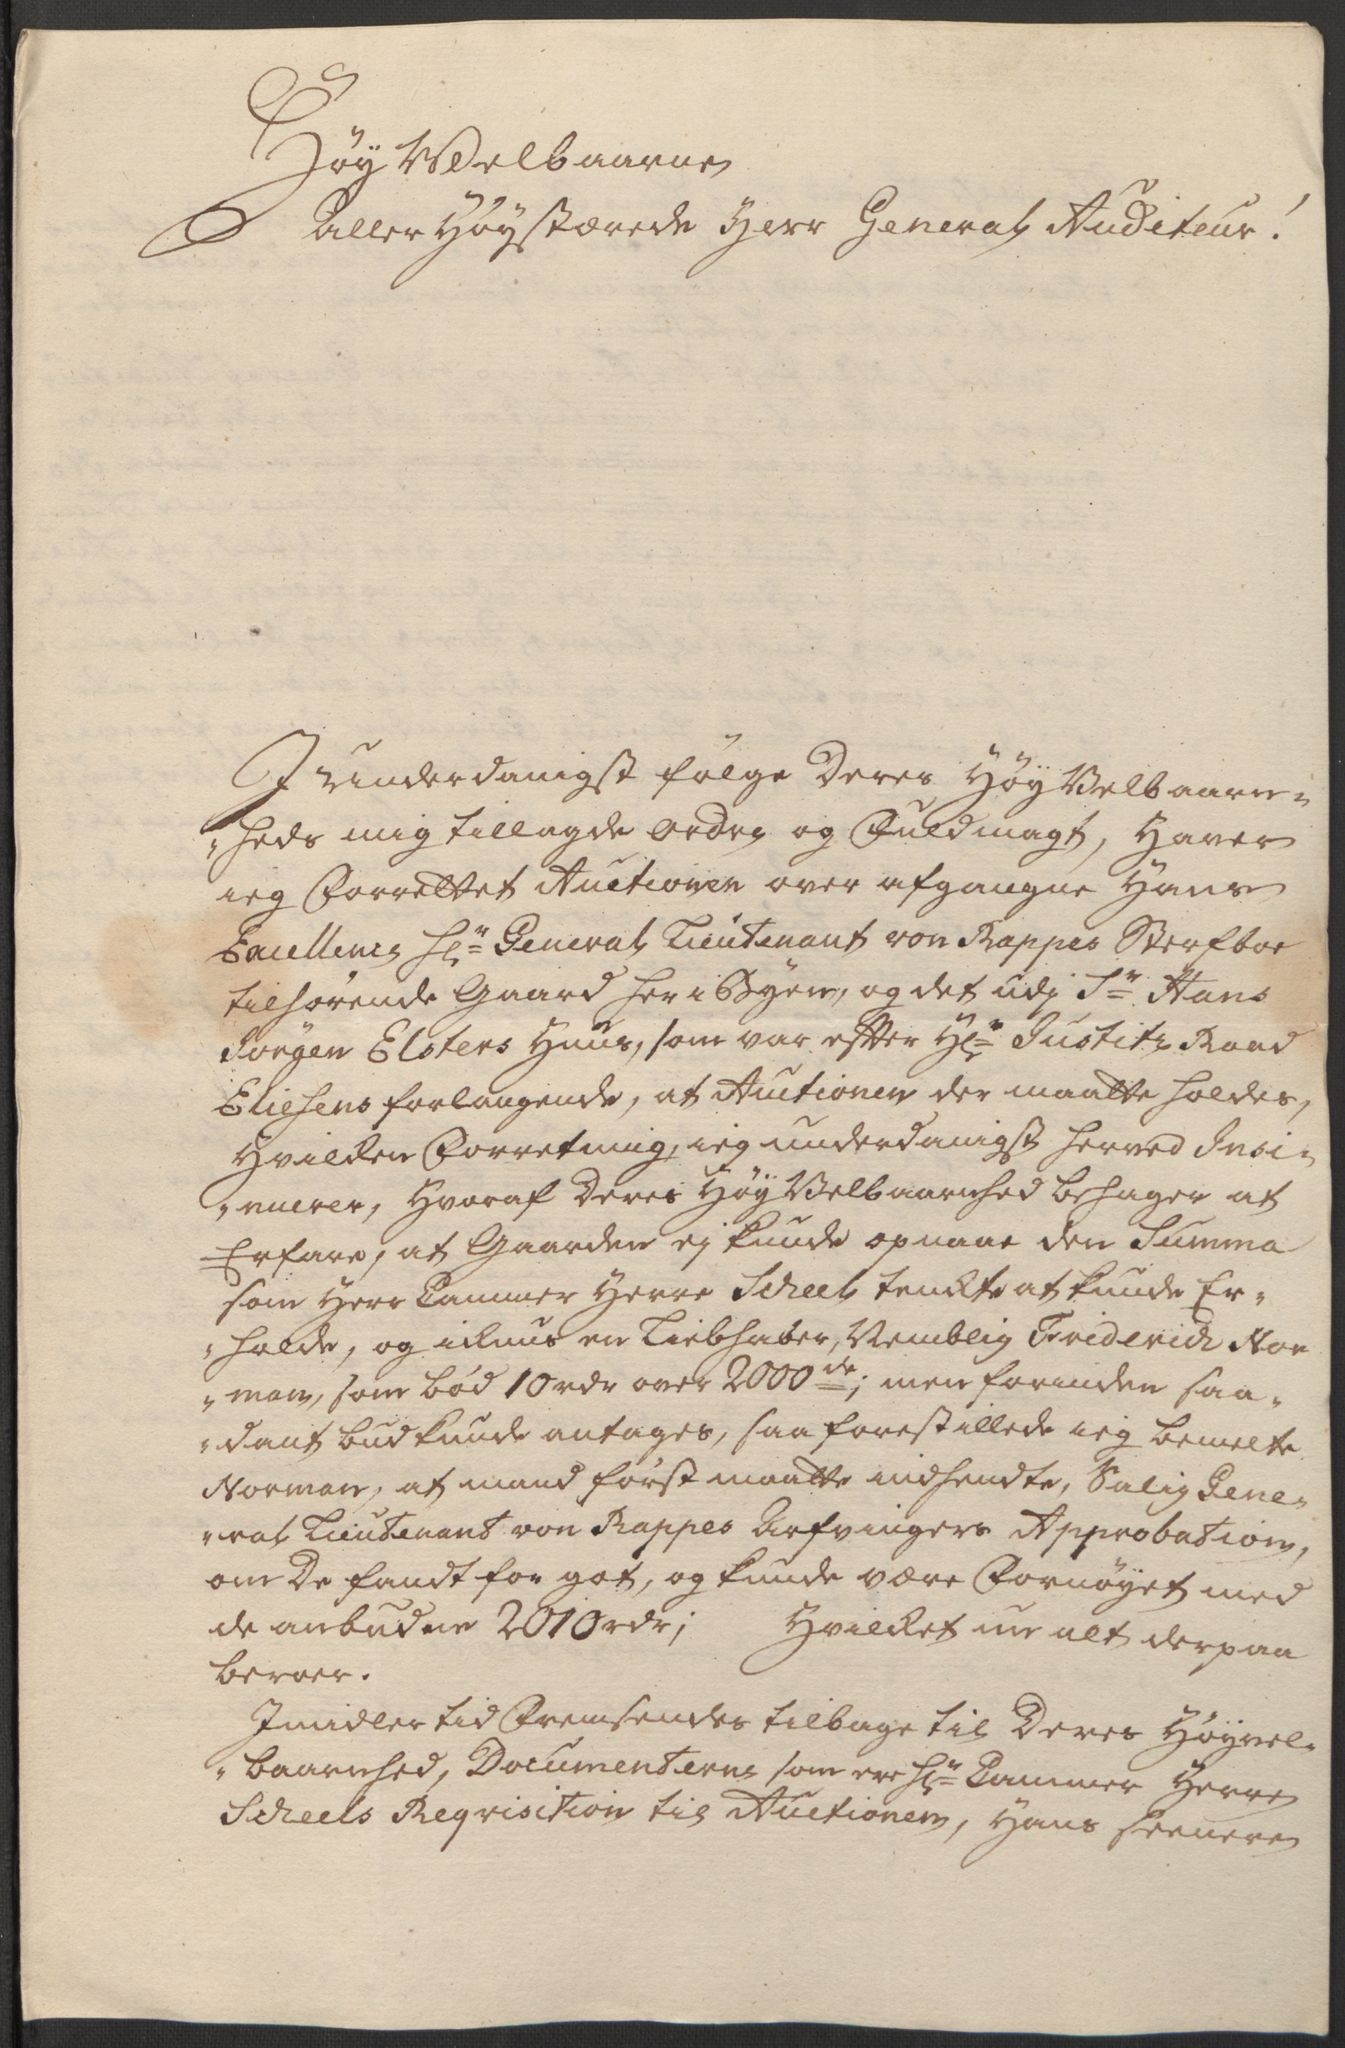 Høy Velbaarne
Aller Høystærede Herr General Auditeur!
I underdanigst følge Deres Høy Velbaarn-
-heds mig tillagde ordre og Fuldmagt, Haver
ieg Forrettet Auctionen over afgangne Hans
Excellence Hr: General Lieutenant von Rappes Sterfboe
tilhørende Gaard her i Byen, og det udj Sr: Hans
Jørgen Elsters Huus, som var efter Hr: Justitz Raad
Eliesens forlangende, at Auctionen der maatte holdes,
Hvilken Forretning, ieg underdanigst herved Insi-
-nuerer, Hvoraf Deres Høy Velbaarnhed behager at
Erfare, at Gaarden ej kunde opnaae den Summa
som Herr Cammer Herre Scheel tenkte at kunde Er-
-holde, og ickuns en Liebhaber, Nemblig Friderich Nor
-man, som bød 10 rdr over 2000de; men forinden saa-
-dant bud kunde antages, saa forestillede ieg bemelte
Norman, at mand først maatte indhendte, Salig Gene-
-ral Lieutenant von Rappes Arfvingers Approbation,
om De fandt for got, og kunde være Fornøyet med
de anbudne 2010 rdr; Hvilket nu alt derpaa
beroer.
Imidlertid Fremsendes tilbage til Deres Høyvel-
-baarnhed, Documenterne som ere Hr: Cammer Herre
Scheels Reqvisition til Auctionen, Hans seenere